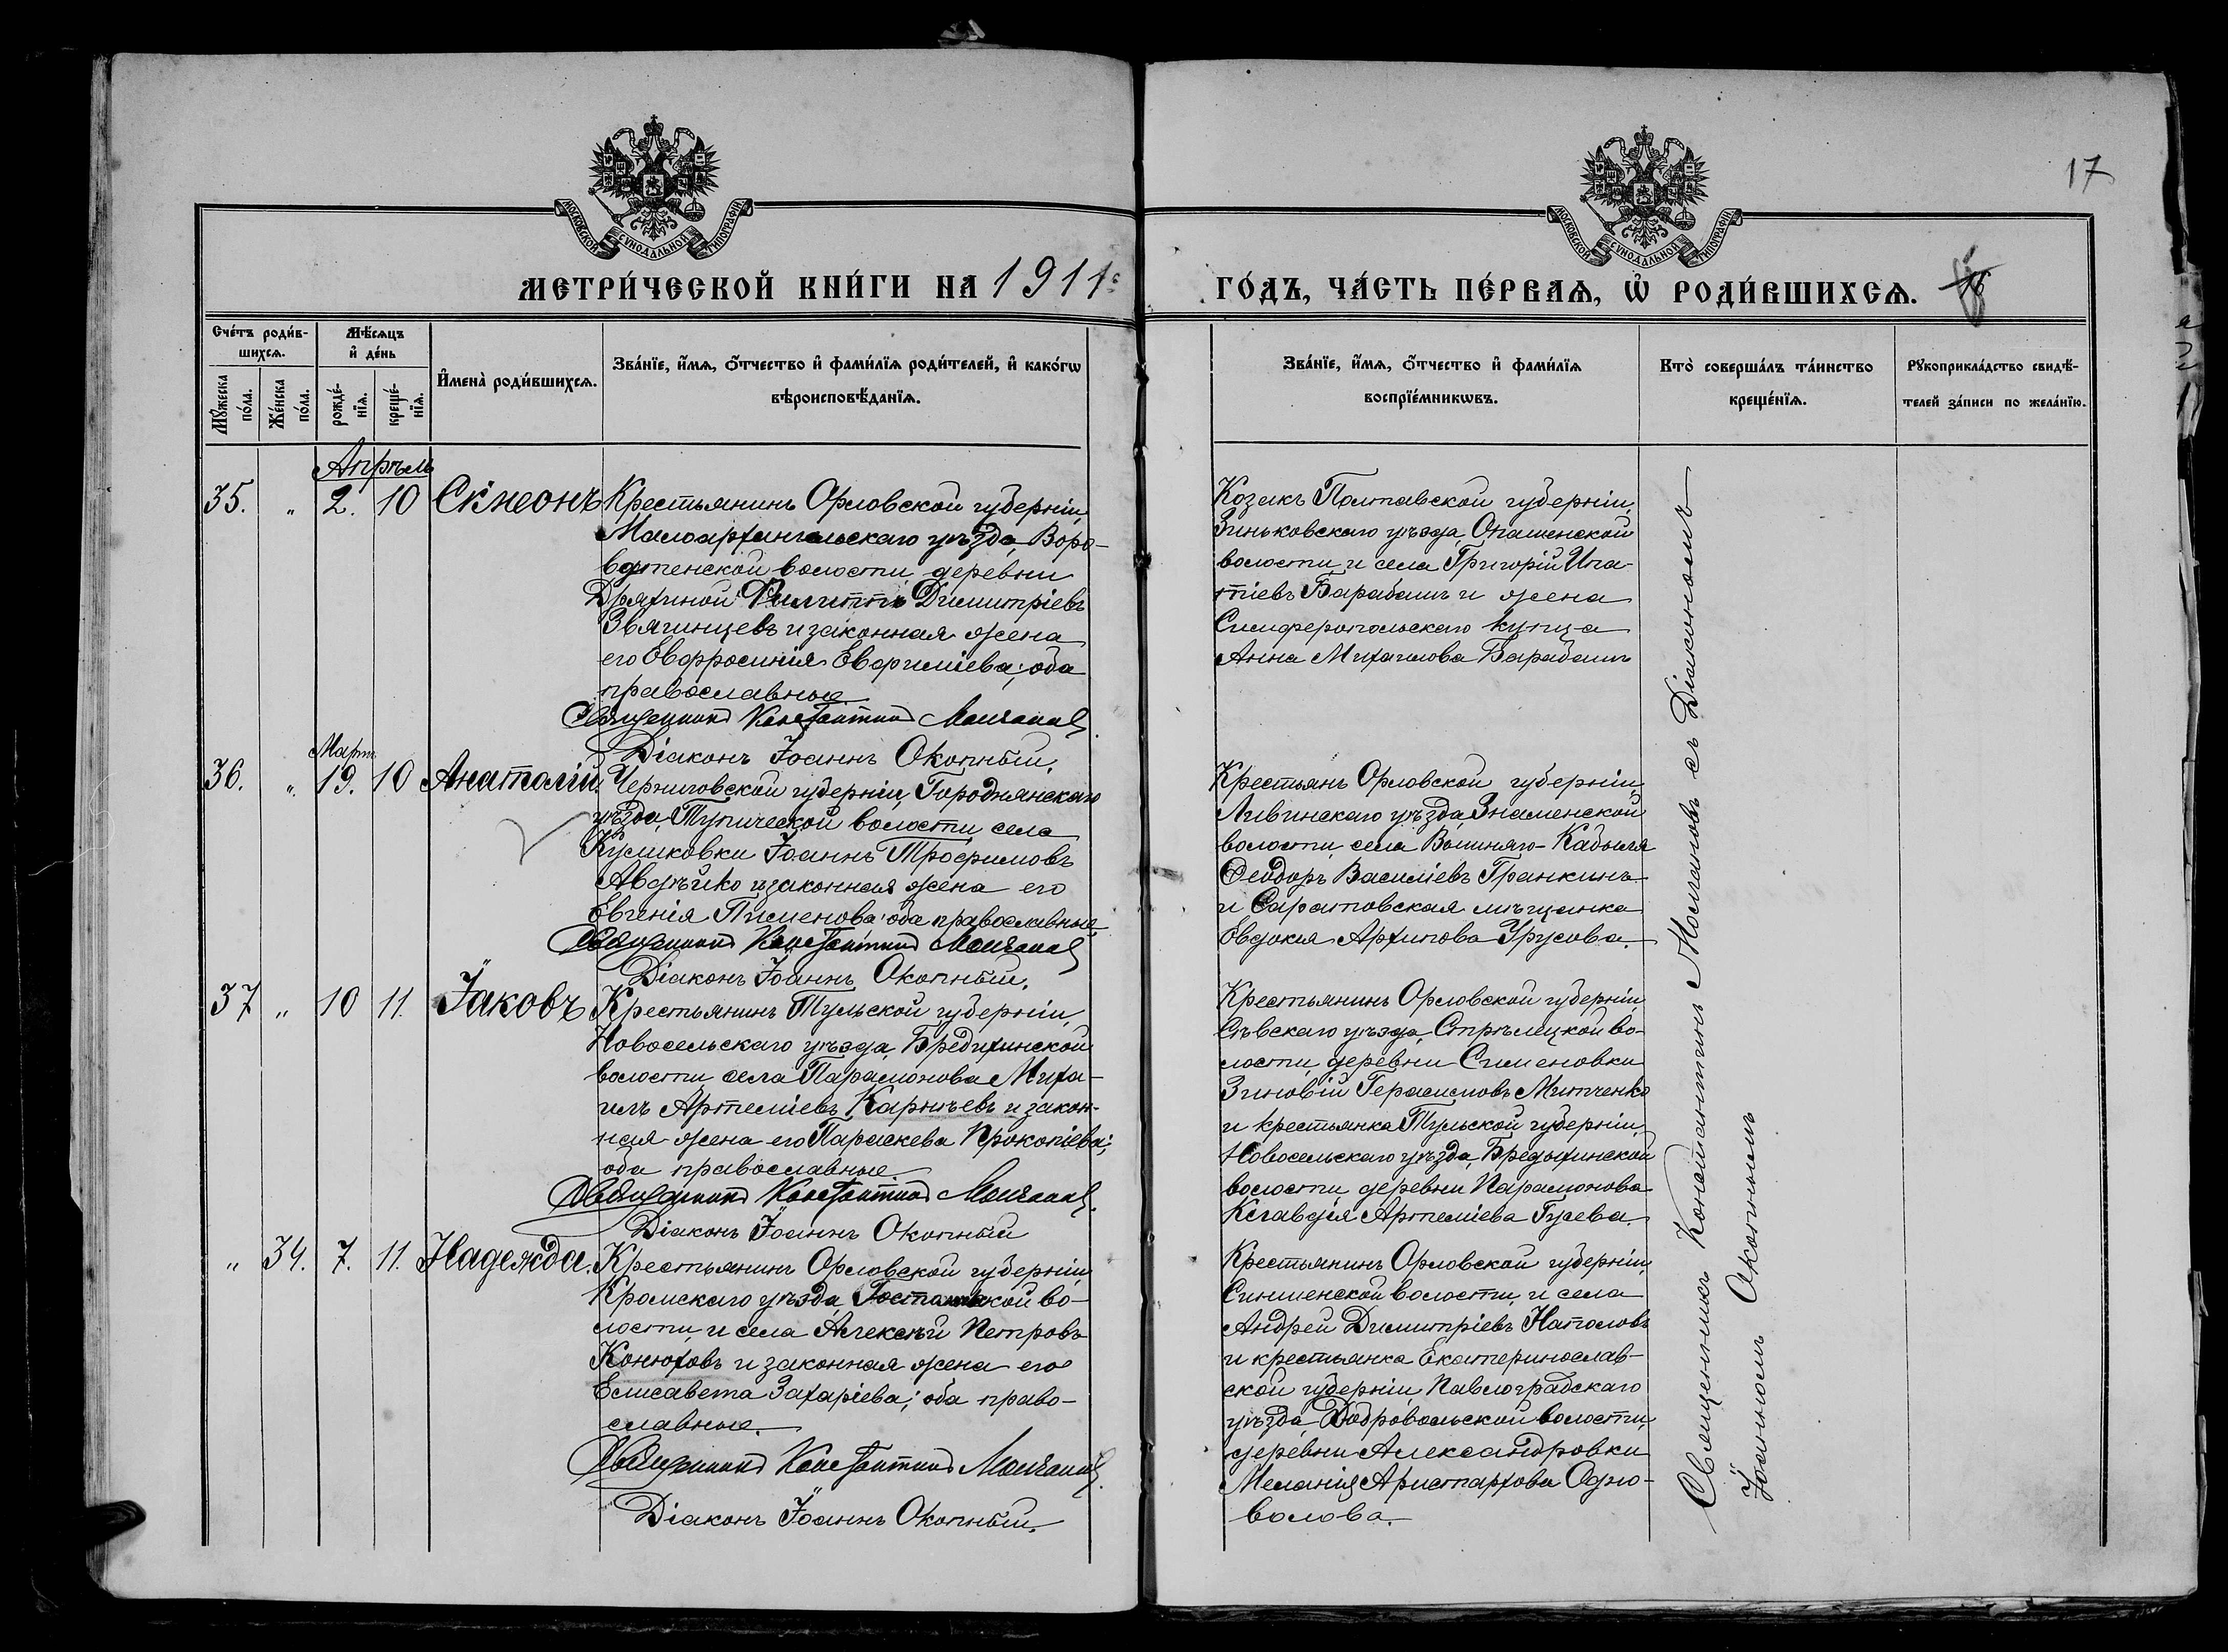 17
МОСКОВСКОЙ СѴНОДАЛЬНОЙ ТИПОГРАФІИ
МОСКОВСКОЙ СѴНОДАЛЬНОЙ ТИПОГРАФІИ
МЕТРИ́ЧЕСКОЙ КНИ́ГИ НА 1911
ГО́ДЪ, ЧА́СТЬ ПЕ́РВАѦ, Ѡ РОДИ́ВШИХСѦ. 16
Сче́тъ роди́в-
шихсѧ.
Мꙋ́жеска по́ла.
Же́нска по́ла.
Мѣ́сѧцъ и҆ де́нь
рожде́-нїѧ.
креще́-нїѧ.
И҆мена̀ роди́вшихсѧ.
Зва́нїе, и҆́мѧ, ѻ҆́тчество и҆ фами́лїѧ роди́телей, и҆ како́гѡ
вѣроисповѣ́данїѧ.
Зва́нїе, и҆́мѧ, ѻ҆́тчество и҆ фами́лїѧ
воспрїе́мникѡвъ.
Кто̀ соверша́лъ та́инство
креще́нїѧ.
Рꙋкоприкла́дство свидѣ́-
телей за́писи по жела́нїю.
Апрѣль
35. " 2. 10 Симеонъ
Крестьянинъ Орловской губерніи,
Малоархангельскаго уѣзда, Воро-
волости деревни
Филиппъ Димитріевъ
Звягинцевъ и законная жена
его Евфросинія Евфиміева; оба
православные
Священникъ Константинъ Молчановъ
Діаконъ Іоаннъ Окопный.
Козакъ Полтавской губерніи,
Зиньковскаго уѣзда, Опошенской
волости и села Григорій Ипа-
тіевъ Барабашъ и жена
Симферопольскаго купца
Анна Михаилова Барабашъ
Мартъ
36. " 19. 10 Анатолій
Черниговской губерніи, Городнянскаго
уѣзда, Тупической волости, села
Куликовки Іоаннъ Трофимовъ
Авдѣйко и законная жена его
Евгенія Пименова; оба православные
Священникъ Константинъ Молчановъ
Діаконъ Іоаннъ Окопный.
Крестьянъ Орловской губерніи,
Ливинскаго уѣзда, Знаменской
волости, села Вышняго-
Ѳеодоръ Василіевъ Гранкинъ
и Саратовская мѣщанка
Евдокія Архипова Урусова.
37 " 10 11. Іаковъ
Крестьянинъ Тульской губерніи,
Новосельскаго уѣзда, Бредихинской
волости, села Парамонова Миха-
илъ Артеміевъ Карнѣевъ и закон-
ная жена его Параскева Прокопіева;
оба православные
Священникъ Константинъ Молчановъ
Діаконъ Іоаннъ Окопный
Крестьянинъ Орловской губерніи,
Сѣвскаго уѣзда, Стрѣлецкой во-
лости, деревни Сименовки
Зиновій Герасимовъ Митченко
и крестьянка Тульской губерніи,
Новосельскаго уѣзда, Бредихинской
волости, деревни Парамонова
Клавдія Артеміева Гусева.
" 34. 7. 11. Надежда.
Крестьянинъ Орловской губерніи,
Кромскаго уѣзда, во-
лости и села Алексѣй Петровъ
Конюховъ и законная жена его
Елисавета Захаріева; оба право-
славные.
Священникъ Константинъ Молчановъ
Діаконъ Іоаннъ Окопный.
Крестьянинъ Орловской губерніи,
волости, и села
Андрей Димитріевъ
и крестьянка Екатеринослав-
ской губерніи, Павлоградскаго
уѣзда, Добровольской волости,
деревни Александровки
Меланія Аристархова Одно-
волова.
Священникъ Константинъ Молчановъ съ Діакономъ
Іоанномъ Окопнымъ